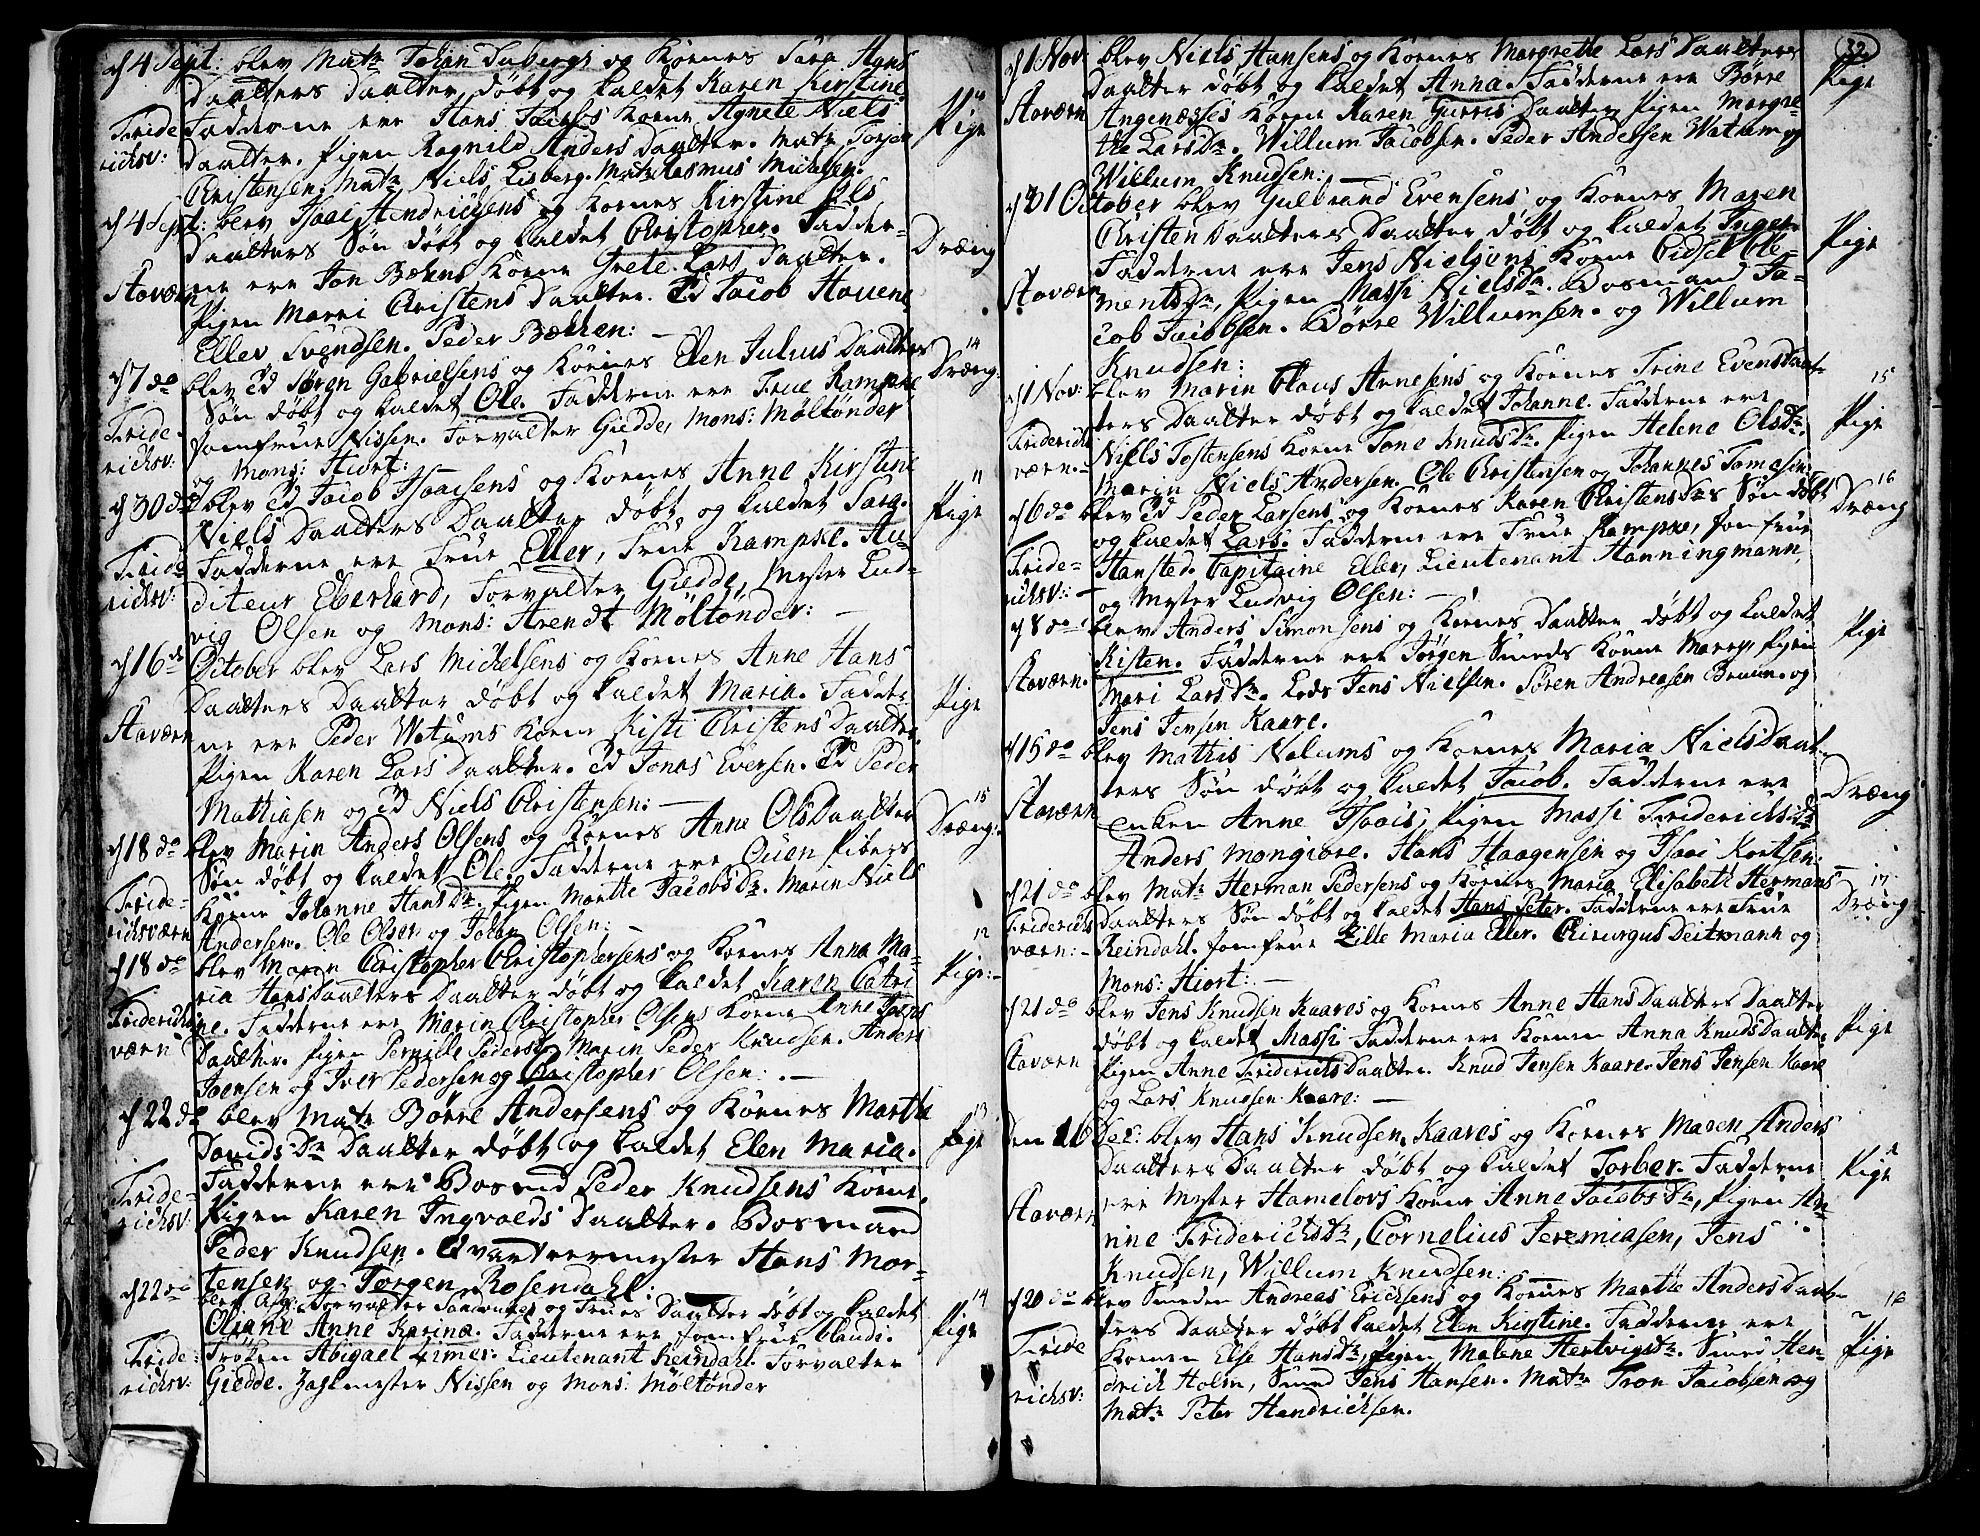 d 4 Sept: blev Mat: Johan Suberg og Kones Sara Hans
Daatters Daatter, døbt og kaldet Karen Kirstine
Fadderne ere Hans Kone Agnete Niels
Daatter. Pigen Ragnild Anders Daatter. Mat: Torjer
Christensen. Mat: Niels Lisberg. Mat: Rasmus Michelsen.
Fride
richsv:
Pige
d 4 Sept: blev Isaac Hendrichsens og Kones Kirstine Ols
Daatters Søn døbt og kaldet Christopher. Fadder-
ne ere Jon Bøkens Kone Grete Lars Daatter.
Pigen Marri Christens Daatter. Ed Jacob
Eller Svendsen. Peder Bøkken: —
Staværn
Dræng
d 7 do blev Ed Søren Gabrielsens og Kones Elen Julius Daatters
Søn døbt og kaldet Ole. Fadderne ere Frue Kampke
Jomfrue Nissen. Forvalter Giedde, Mons: Møltønder
og Mons: Hiort:
Fride
richsv:
14
Dræng:
d 30 do blev Ed Jacob Isaacsens og Kones Anne Kirstine
Niels Daatters Daatter døbt og kaldet Sara.
Fadderne ere Frue Eller, Frue Kampke. Au-
diteur Eberhard, Forvalter Giedde, Mester Lud-
vig Olsen og Mons: Arendt Møltønder: —
Fride
richsv:
11
Pige
d 16 de October blev Lars Michelsens og Kones Anne Hans
Daatters Daatter døbt og kaldet Maria. Fadder
ne ere Peder Watums Kone Kisti Christens Daatter.
Pigen Karen Lars Daatter. Ed Jonas Eversen. Ed Peder
Mathiasen og Ed Niels Christensen: —
Staværn
Pige
d 18 do blev Marin Anders Olsens og Kones Anne Ols Daatter
Søn døbt og kaldet Ole. Fadderne ere Ouen Pibers
Kone Johanne Hans Dr. Pigen Marthe Jacobs Dr. Marin Niels
Andersen. Ole Olsen og Johan Olsen: —
Fride=
richsværn
15
Dræng:
d 18 do blev Marin Christopher Christophersens og Kones Anna Ma-
ria Hans Daatters Daatter døbt og kaldet Karen Catri
ne. Fadderne ere Marin Christopher Olsens Kone Anne
Daatter. Pigen Pernille Peders Dr Marin Peder Knudsen. Anders
Joensen og Iver Pedersen og Christopher Olsen: . —
Friderichs
værn
12
Pige: —
d 22 do blev Mat: Børre Andersens og Kones Marthe
Davids Dr Daatter døbt og kaldet Elen Maria.
Fadderne ere Bosmd Peder Knudsens Kone.
Pigen Karen Ingvolds Daatter. Bosmand
Peder Knudsen. Qvarteermester Hans Mor-
tensen og Jørgen Rosendahl:
Fride=
richsv:
13
Pige
d 22 do blev Forvalter og Frues Daatter døbt og kaldet
Oliane Anne Karina. Fadderne ere Jomfrue Claudi.
Frøken Abigael Limer. Lieutenant Reindahl. Forvalter
Giedde. Mester Nissen og Mons: Møltønder
Fride:
richsv:
14
Pige
32
d 1 Nov: blev Niels Hansens og Kones Margrethe Lars Daatters
Daatter døbt og kaldet Anna. Fadderne ere Børre
Angenæsses Kone Karen Daatter, Pigen Margre-
the Lars Dr. Willum Jacobsen. Peder Andersen Watum og
Willum Knudsen: —
Staværn
Pige
d 31 October blev Gulbrand Evensens og Kones Maren
Christen Daatters Daatter døbt og kaldet Inger
Fadderne ere Jens Nielsens Kone Cidsel Cle-
ments Dr, Pigen Massi Niels Dr. Bosmand Ja-
cob Jacobsen. Børre Willumsen. og Willum
Knudsen:
Staværn
Pige
d 1 Nov: blev Marin Claus Arnesens og Kones Trine Evens Daat-
ters Daatter døbt og kaldet Johanne. Fadderne ere
Niels Tostensens Kone Tone Knuds Dr. Pigen Helene Ols Dr.
Marin Niels Andersen. Ole Christensen og Johannes Tomesen:
Friderichs
værn. —
15
Pige
d 6 do blev Ed Peder Larsens og Kones Karen Christens Drs Søn døbt
og kaldet Lars. Fadderne ere Frue Kampke, Jomfrue
Hansted. Capitaine Eller, Lieutenant Hanningmann,
og Mester Ludvig Olsen: —
Fride=
richsv: —
16
Dræng
d 8 do blev Anders Simonsens og Kones Daatter døbt og kaldet
Kisten. Fadderne ere Jørgen Smeds Kone Maren, Pigen
Mari Lars Dr. Lods Jens Nielsen. Søren Andreasen Bruun. og
Jens Jensen Kaare.
Staværn.
Pige
d 15 do blev Mathis Nalums og Kones Maria Niels Daat-
ters Søn døbt og kaldet Jacob. Fadderne ere
Enken Anne Isacs, Pigen Massi Friderichs Dr
Anders Mongiøre. Hans Haagensen og Isaac Kortsen:
Staværn
Dræng
d 21 do blev Mat: Herman Pedersens og Kones Maria Elisabeth Hermans
Daatters Søn døbt og kaldet Hans Peter. Fadderne ere Frue
Reindahl. Jomfrue Lille Maria Eller. Chirurgus Deitmann og
Mons: Hiort: —
Friderichs
værn: —
17
Dræng
d 21 do blev Jens Knudsen Kaares og Kones Anne Hans Daatters Daatter
døbt og kaldet Massi Fadderne ere Konen Anna Knuds Daatter
Pigen Anne Friderichs Daatter. Knud Jensen Kaare. Jens Jensen Kaare
og Lars Knudsen Kaare: —
Staværn
Pige
den 10 Dec: blev Hans Knudsen Kaares og Kones Maren Anders
Daatters Daatter døbt og kaldet Torber. Fadderne
ere Mester Hamelovs Kone Anne Jacobs Dr, Pigen An-
nne Friderichs Dr, Cornelius Jeremiasen, Jens
Knudsen, Willum Knudsen:
Staværn
Pige
d 20 do blev Smeden Andreas Ericksens og Kones Marthe Anders Daat-
ters Daatter døbt kaldet Elen Kirstine. Fadderne ere
Konen Else Hans Dr, Pigen Malene Hertvigs Dr. Smed Hen-
drich Holm, Smed Jens Hansen. Mat: Tron Jacobsen og
Mat: Peter Hendrichsen.
Fride
richsv:
16
Pige